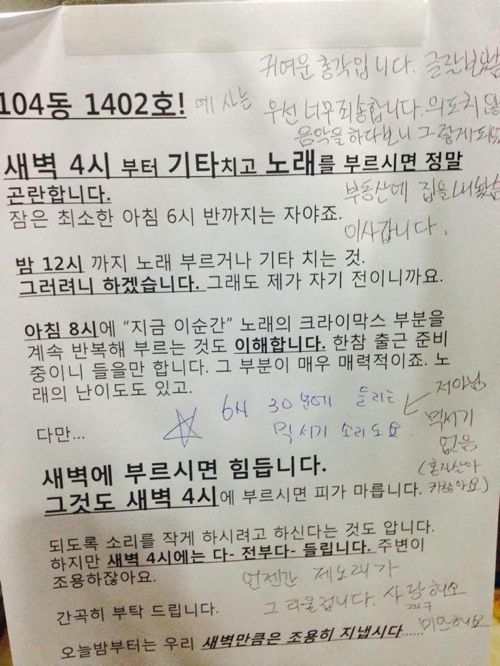 귀여운 총각입니다. 글 잘 보았
104동 1402호! 에 사는
우선 너무 죄송합니다. 의도치 않
음악을 하다보니 그렇게 되
새벽 4시 부터 기타치고 노래를 부르시면 정말
곤란합니다.
부동산에 집을 내놨습
잠은 최소한 아침 6시 반까지는 자야죠.
이사갑니다.
밤 12시 까지 노래 부르거나 기타 치는 것.
그러려니 하겠습니다. 그래도 제가 자기 전이니까요.
아침 8시에 “지금 이순간” 노래의 크라이막스 부분을
계속 반복해 부르는 것도 이해합니다. 한참 출근 준비
중이니 들을만 합니다. 그 부분이 매우 매력적이죠. 노
래의 난이도도 있고.
다만...
☆ 6시 30분에 들리는
믹서기 소리도요
저아님
믹서기
없음
(혼자살아
새벽에 부르시면 힘듭니다.
그것도 새벽 4시에 부르시면 피가 마릅니다.
되도록 소리를 작게 하시려고 하신다는 것도 압니다.
하지만 새벽 4시에는 다- 전부다- 들립니다. 주변이
조용하잖아요.
언젠간 제노래가
그리울겁니다. 사랑해요
간곡히 부탁 드립니다.
미안해요
오늘밤부터는 우리 새벽만큼은 조용히 지냅시다......